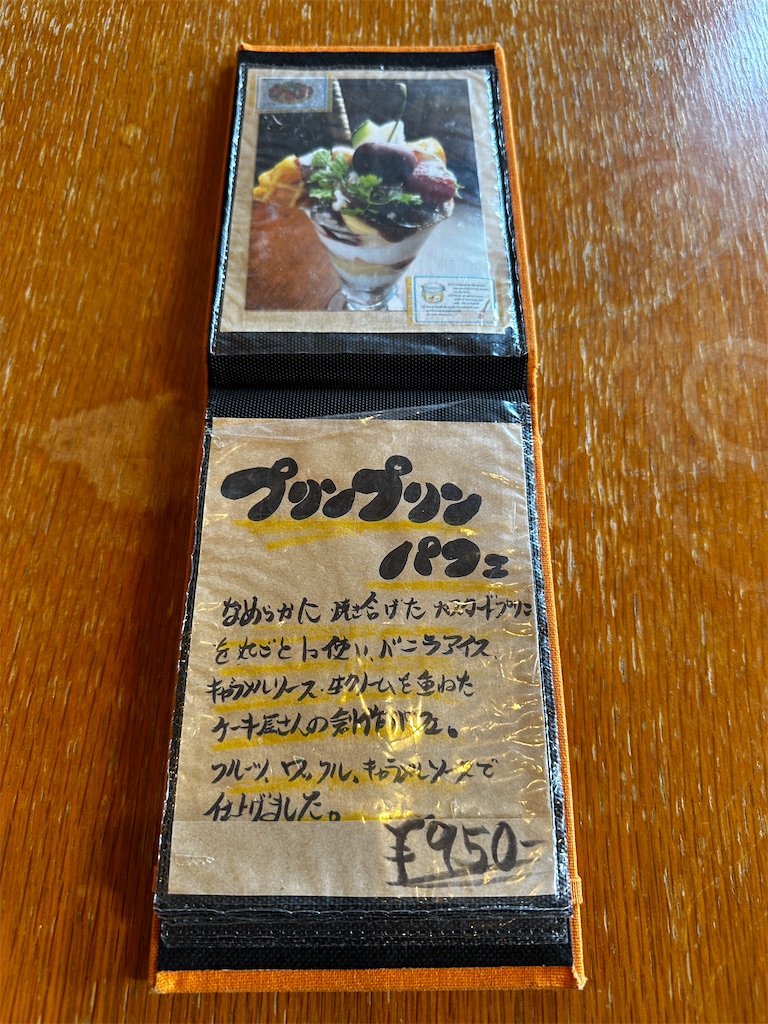 プリンプリン
パフェ
なめらかに 焼き合げた カスタードプリン
を丸ごとに使い、バニラアイス、
キャラメルソース、生クリームを重ねた
ケーキ屋さんの創作パフェ。
フルーツ、ワッフル、キャラメルソースで
仕上げました。
¥950-